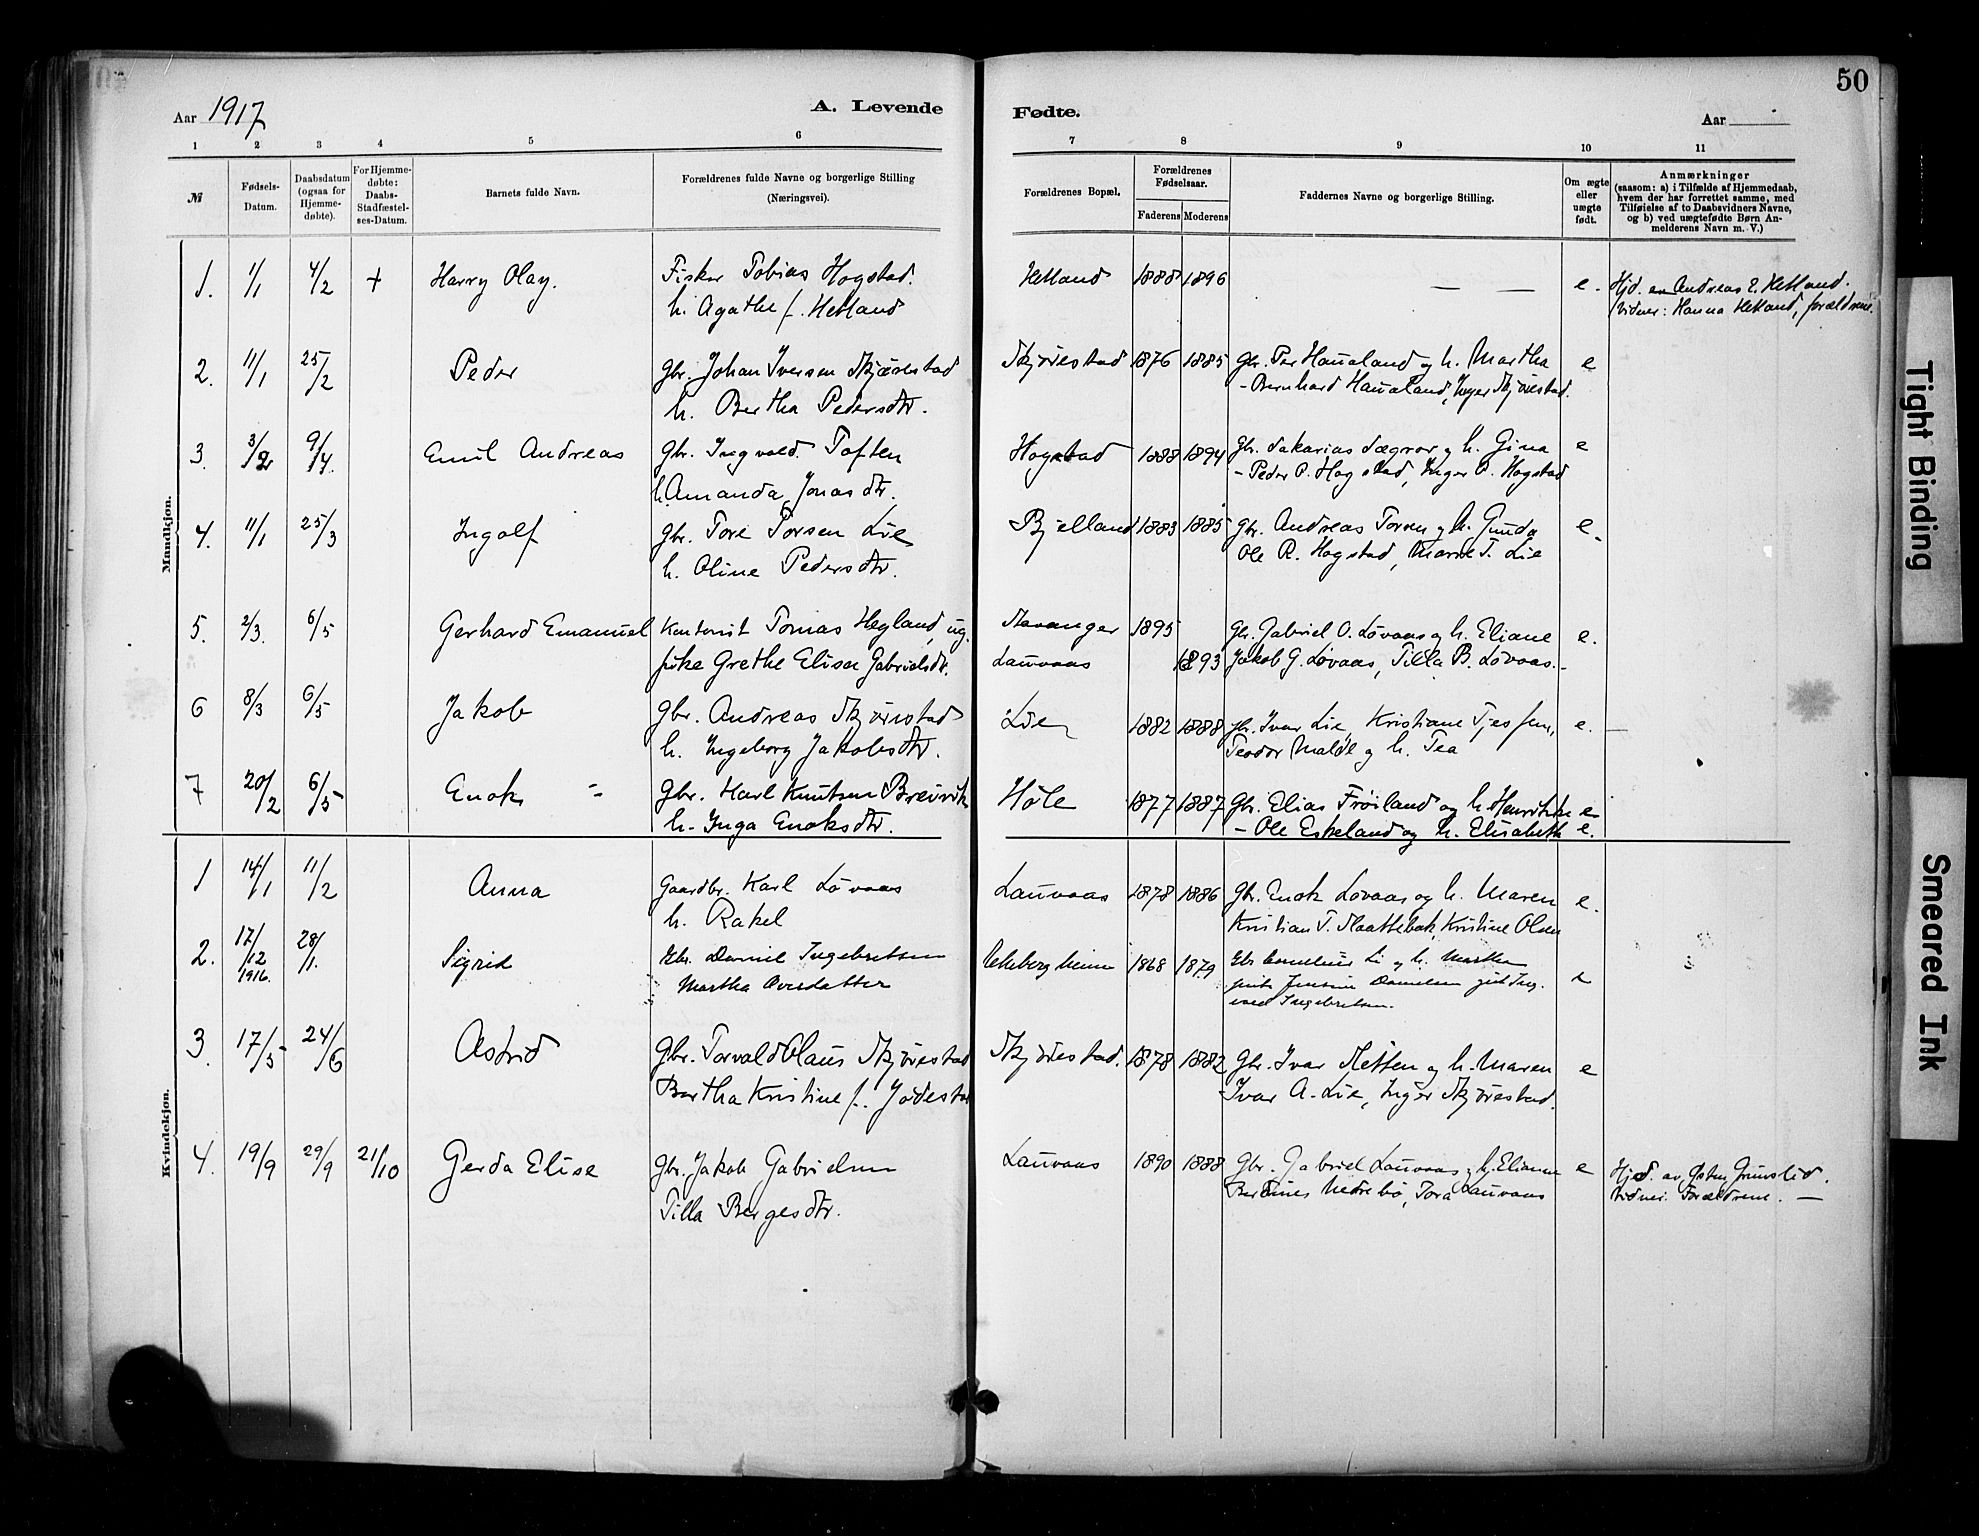 50
Aar 1917
A. Levende
Fødte.
Aar
1 2 3 4 5 6 7 8 9 10 11
№
Fødsels-
Datum.
Daabsdatum
(ogsaa for
Hjemme-
døbte).
For Hjemme-
døbte:
Daabs-
Stadfæstel-
ses-Datum.
Barnets fulde Navn.
Forældrenes fulde Navne og borgerlige Stilling
(Næringsvei).
Forældrenes Bopæl.
Forældrenes
Fødselsaar.
Faderens
Moderens
Faddernes Navne og borgerlige Stilling.
Om ægte
eller
uægte
født.
Anmærkninger
(saasom: a) i Tilfælde af Hjemmedaab,
hvem der har forrettet samme, med
Tilføielse af to Daabsvidners Navne,
og b) ved uægtefødte Børn An-
melderens Navn m. V.)
Mandkjøn.
1. 1/1 4/2 + Harry Olay. Fisker Tobias Hogstad. Hetland 1888 1896 — — e. Hjd. av Andreas E. Hetland.
h. Agathe f. Hetland Vidner: Hanna Hetland, forældrene.
2. 11/1 25/2 Peder Gbr. Johan Iversen Skjørestad Skjørestad 1876 1885 Gbr. Per Haualand og h. Martha e
h. Bertha Pedersdtr. - Bernhard Haualand, Inger Skjørestad.
3. 3/2 9/4. Emil Andreas Gbr. Ingvald Toften Hogstad 1888 1894 Gbr. Sakarias Sægrov og h. Gina e
h. Amanda Jonasdtr. - Peder P. Hogstad, Inger P. Hogstad
4. 11/1 25/3 Ingolf Gbr. Tore Torsen Lie Bjelland 1883 1885 Gbr. Andreas Torsen og h. Gunda e.
h. Oline Pedersdtr. Ole R. Hogstad, Marie T. Lie
5. 2/3. 6/5 Gerhard Emanuel Kontorist Tomas Høgland, ug. Stavanger 1895 Gbr. Gabriel O. Løvaas og h. Eliane e.
pike Grethe Elisa Gabrielsdtr. Lauvaas 1893 Jakob G. Løvaas, Tilla B. Løvaas.
6 8/3 6/5 Jakob Gbr. Andreas Skjørestad Lie 1882 1888 Gbr. Ivar Lie, Kristiane e.
h. Ingeborg Jakobsdtr. Teodor Malde og h. Tea
7 20/2 6/5 Enok Gbr. Karl Knutsen Breivik Høle 1877 1887 Gbr. Elias Frøiland og h. Henrikke e
h. Inga Enoksdtr. - Ole Eskeland og h. Elisabeth e.
Kvindekjøn.
1 14/1 11/2 Anna Gaardbr. Karl Løvaas Lauvaas 1878 1886 Gbr. Enok Løvaas og h. Maren e.
h. Rakel Kristian T. Slaattebak, Kristine Olsen
2. 17/12 1916. 28/1. Sigrid Gbr. Daniel Ingebretsen 1868 1879 Gbr Cornelius Li og h. Martha e
Martha Ovesdatter Danielsen
Ingebretsen.
3. 17/5 24/6 Astrid Gbr. Torvald Olaus Skjørestad Skjørestad. 1878 1882 Gbr. Ivar Sletten og h. Maren e
Bertha Kristine f. Jødestad - Ivar A. Lie, Inger Skjørestad.
4. 19/9 29/9 21/10 Gerda Elise Gbr. Jakob Gabrielsen Lauvaas 1890 1888 Gbr. Gabriel Lauvaas og h. Elianne e Hjd. av Østen Grimslid.
Tilla Bergesdtr. Bertinus Nedrebø, Tora Lauvaas Vidner: Forældrene. —
Tight Binding
Smeared Ink